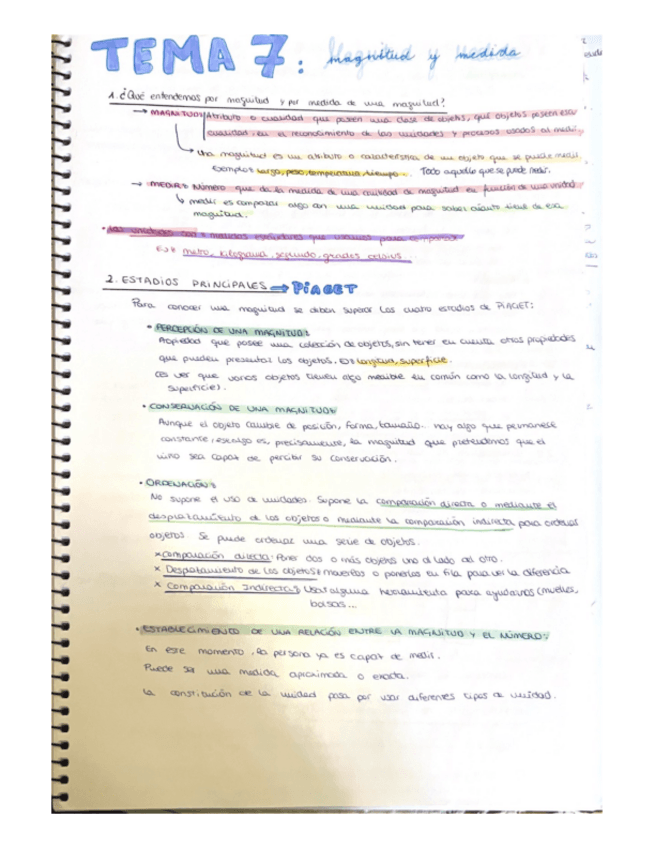 TEMA 7: Magnitud y Medida
1. ¿Qué entendemos por magnitud y por medida de una magnitud?
→ MAGNITUD: Atributo o cualidad que poseen una clase de objetos, qué objetos poseen esa
cualidad, en el reconocimiento de las unidades y procesos usados al medir.
Una magnitud es un atributo o característica de un objeto que se puede medir.
Ejemplo: Largo, peso, temperatura, tiempo... Todo aquello que se puede medir.
→ MEDIR: Número que da la medida de una cantidad de magnitud en función de una unidad.
↳ medir es comparar algo con una unidad para saber cuánto tiene de esa
magnitud.
• Las unidades son medidas estándares que usamos para comparar
EJ: metro, kilogramo, segundo, grados celsius.
2. ESTADIOS PRINCIPALES → PIAGET
Para conocer una magnitud se deben superar los cuatro estadios de PIAGET:
• PERCEPCIÓN DE UNA MAGNITUD:
Propiedad que posee una colección de objetos, sin tener en cuenta otras propiedades
que pueden presentar los objetos. EJ: longitud, superficie.
(Es ver que varios objetos tienen algo medible en común como la longitud y la
superficie).
• CONSERVACIÓN DE UNA MAGNITUD:
Aunque el objeto cambie de posición, forma, tamaño... hay algo que permanese
constante, ese algo es, precisamente, la magnitud que pretendemos que el
niño sea capaz de percibir su conservación.
• ORDENACIÓN:
No supone el uso de unidades. Supone la comparación directa o mediante el
desplazamiento de los objetos o mediante la comparación indirecta, para ordenar
objetos. Se puede ordenar una serie de objetos.
x Comparación directa: Poner dos o más objetos uno al lado del otro.
x Desplazamiento de los objetos: moverlos o ponerlos en fila para ver la diferencia
x Comparación Indirecta: Usar alguna herramienta para ayudarnos (muelles,
balsas...
• ESTABLECIMIENTO DE UNA RELACIÓN ENTRE LA MAGNITUD Y EL NÚMERO:
En este momento, la persona ya es capaz de medir.
Puede ser una medida aproximada o exacta.
La constitución de la unidad pasa por usar diferentes tipos de unidad.